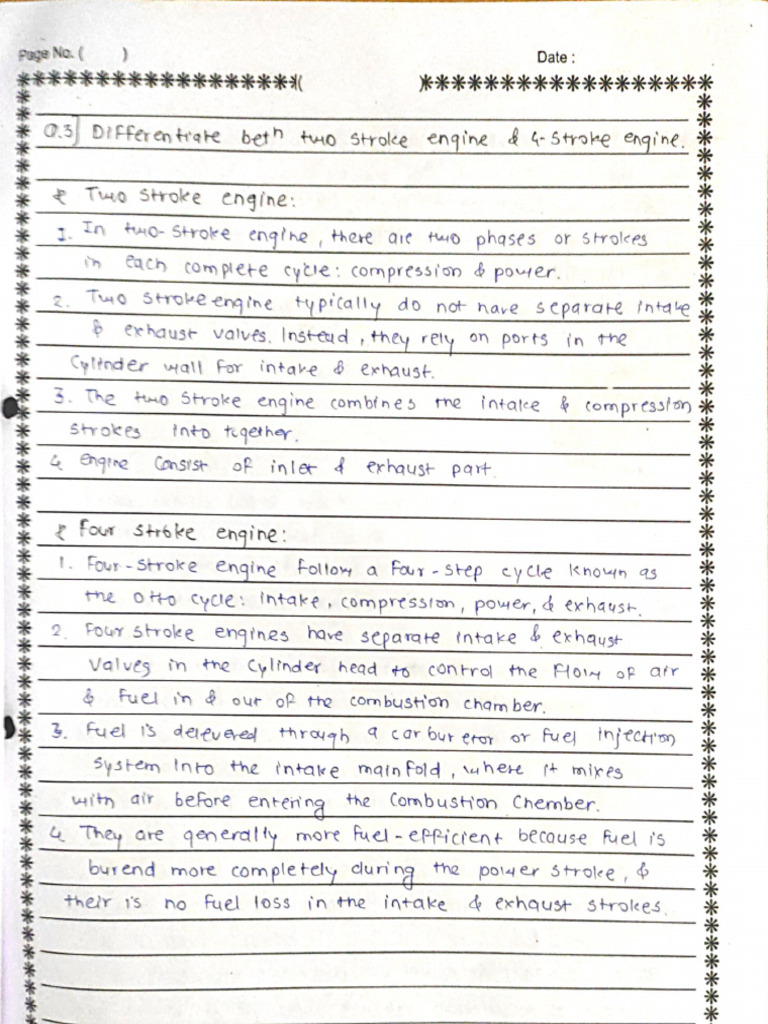 Page No. ( )
Date :
Q.3] Differentiate betn two stroke engine & 4-stroke engine.
* Two stroke engine:
1. In two-stroke engine, there are two phases or strokes
in each complete cycle: compression & power.
2. Two stroke engine typically do not have separate intake
& exhaust valves. Instead, they rely on ports in the
Cylinder wall for intake & exhaust.
3. The two stroke engine combines the intake & compression
strokes into together.
4. engine consist of inlet & exhaust part.
* Four stroke engine:
1. Four-stroke engine follow a four-step cycle known as
the otto cycle: intake, compression, power, & exhaust.
2. Four stroke engines have separate intake & exhaust
valves in the cylinder head to control the flow of air
& fuel in & out of the combustion chamber.
3. Fuel is delevered through a carburetor or fuel injection
system into the intake mainfold, where it mixes
with air before entering the Combustion Chember.
4. They are generally more fuel-efficient because fuel is
burend more completely during the power stroke, &
their is no fuel loss in the intake & exhaust strokes.